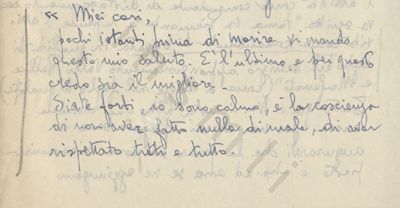 « Miei cari,
pochi istanti prima di morire vi mando
questo mio saluto. E' l'ultimo e per questo
credo sia il migliore.
Siate forti, io sono calmo, e la coscienza
di non aver fatto nulla di male, di aver
rispettato tutti e tutto.